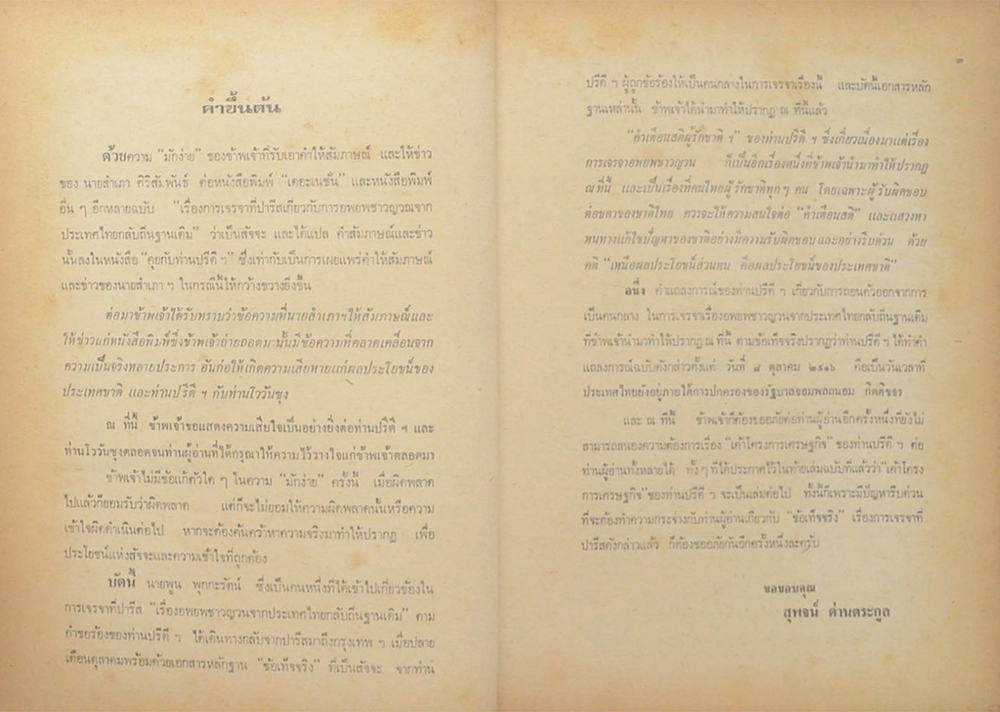 คำขึ้นต้น
ด้วยความ "มักง่าย" ของข้าพเจ้าที่รับเอาคำให้สัมภาษณ์ และให้ข่าว
ของ นายสำเภา ศิริสัมพันธ์ ต่อหนังสือพิมพ์ "เดอะเนชั่น" และหนังสือพิมพ์
อื่น ๆ อีกหลายฉบับ "เรื่องการเจรจาที่ปารีสเกี่ยวกับการอพยพชาวญวณจาก
ประเทศไทยกลับถิ่นฐานเดิม" ว่าเป็นสัจจะ และได้แปล คำสัมภาษณ์และข่าว
นั้นลงในหนังสือ "คุยกับท่านปรีดี ฯ" ซึ่งเท่ากับเป็นการเผยแพร่คำให้สัมภาษณ์
และข่าวของนายสำเภา ฯ ในกรณีนี้ให้กว้างขวางยิ่งขึ้น
ต่อมาข้าพเจ้าได้รับทราบว่าข้อความที่นายสำเภาฯให้สัมภาษณ์และ
ให้ข่าวแก่หนังสือพิมพ์ซึ่งข้าพเจ้าถ่ายถอดมานั้นมีข้อความที่คลาดเคลื่อนจาก
ความเป็นจริงหลายประการ อันก่อให้เกิดความเสียหายแก่ผลประโยชน์ของ
ประเทศชาติ และท่านปรีดี ฯ กับท่านโววันชุง
ณ ที่นี้ ข้าพเจ้าขอแสดงความเสียใจเป็นอย่างยิ่งต่อท่านปรีดี ฯ และ
ท่านโววันชุงตลอดจนท่านผู้อ่านที่ได้กรุณาให้ความไว้วางใจแก่ข้าพเจ้าตลอดมา
ข้าพเจ้าไม่มีข้อแก้ตัวใด ๆ ในความ "มักง่าย" ครั้งนี้ เมื่อผิดพลาด
ไปแล้วก็ยอมรับว่าผิดพลาด แต่ก็จะไม่ยอมให้ความผิดพลาดนั้นหรือความ
เข้าใจผิดดำเนินต่อไป หากจะต้องค้นคว้าหาความจริงมาทำให้ปรากฏ เพื่อ
ประโยชน์แห่งสัจจะและความเข้าใจที่ถูกต้อง
บัดนี้ นายพูน พุกกะรัตน์ ซึ่งเป็นคนหนึ่งที่ได้เข้าไปเกี่ยวข้องใน
การเจรจาที่ปารีส "เรื่องอพยพชาวญวนจากประเทศไทยกลับถิ่นฐานเดิม" ตาม
คำขอร้องของท่านปรีดี ฯ ได้เดินทางกลับจากปารีสมาถึงกรุงเทพ ฯ เมื่อปลาย
เดือนตุลาคมพร้อมด้วยเอกสารหลักฐาน "ข้อเท็จจริง" ที่เป็นสัจจะ จากท่าน
ปรีดี ฯ ผู้ถูกขอร้องให้เป็นคนกลางในการเจรจาเรื่องนี้ และบัดนี้เอกสารหลัก
ฐานเหล่านั้น ข้าพเจ้าได้นำมาทำให้ปรากฏ ณ ที่นี้แล้ว
"คำเตือนสติผู้รักชาติ ฯ" ของท่านปรีดี ฯ ซึ่งเกี่ยวเนื่องมาแต่เรื่อง
การเจรจาอพยพชาวญวน ก็เป็นอีกเรื่องหนึ่งที่ข้าพเจ้านำมาทำให้ปรากฏ
ณ ที่นี้ และเป็นเรื่องที่คนไทยผู้รักชาติทุก ๆ คน โดยเฉพาะผู้รับผิดชอบ
ต่อชตาของชาติไทย ควรจะให้ความสนใจต่อ "คำเตือนสติ" และแสวงหา
หนทางแก้ไขปัญหาของชาติอย่างมีความรับผิดชอบและอย่างรีบด่วน ด้วย
คติ "เหนือผลประโยชน์ส่วนตน คือผลประโยชน์ของประเทศชาติ"
อนึ่ง คำแถลงการณ์ของท่านปรีดี ฯ เกี่ยวกับการถอนตัวออกจากการ
เป็นคนกลาง ในการเจรจาเรื่องอพยพชาวญวนจากประเทศไทยกลับถิ่นฐานเดิม
ที่ข้าพเจ้านำมาทำให้ปรากฏ ณ ที่นี้ ตามข้อเท็จจริงปรากฏว่าท่านปรีดี ฯ ได้ทำคำ
แถลงการณ์ฉบับดังกล่าวตั้งแต่ วันที่ ๘ ตุลาคม ๒๕๑๖ คือเป็นวันเวลาที่
ประเทศไทยยังอยู่ภายใต้การปกครองของรัฐบาลจอมพลถนอม กิตติขจร
และ ณ ที่นี้ ข้าพเจ้าก็ต้องขออภัยต่อท่านผู้อ่านอีกครั้งหนึ่งที่ยังไม่
สามารถสนองความต้องการเรื่อง "เค้าโครงการเศรษฐกิจ" ของท่านปรีดี ฯ ต่อ
ท่านผู้อ่านทั้งหลายได้ ทั้ง ๆ ที่ได้ประกาศไว้ในท้ายเล่มฉบับที่แล้วว่า "เค้าโครง
การเศรษฐกิจ" ของท่านปรีดี ฯ จะเป็นเล่มต่อไป ทั้งนี้ก็เพราะมีปัญหารีบด่วน
ที่จะต้องทำความกระจ่างกับท่านผู้อ่านเกี่ยวกับ "ข้อเท็จจริง" เรื่องการเจรจาที่
ปารีสดังกล่าวแล้ว ก็ต้องขออภัยกันอีกครั้งหนึ่งละครับ
ขอขอบคุณ
สุพจน์ ด่านตระกูล